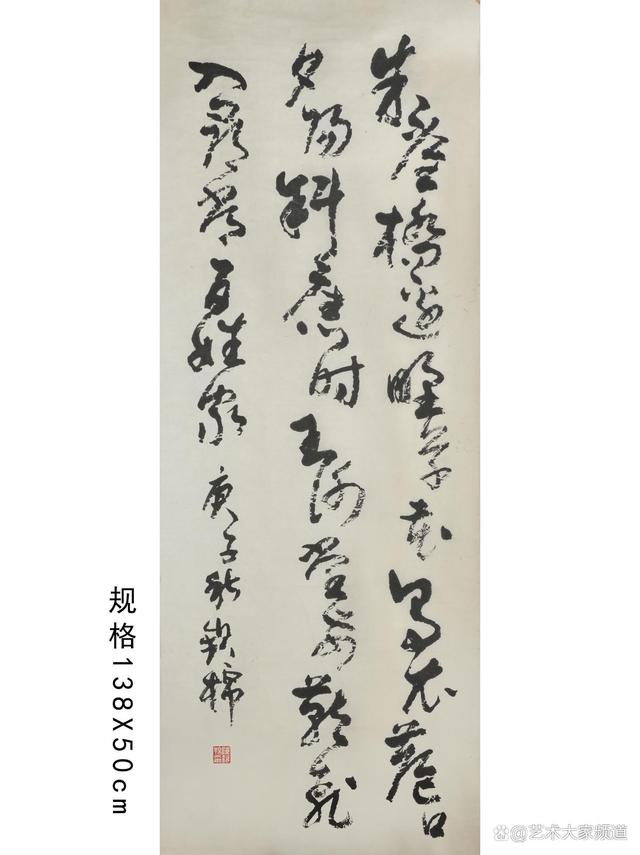 朱雀橋邊野草花烏衣巷口
夕陽斜舊时王謝堂前燕飛
入尋常百姓家 庚子秋
规格138X50cm
@艺术大家频道